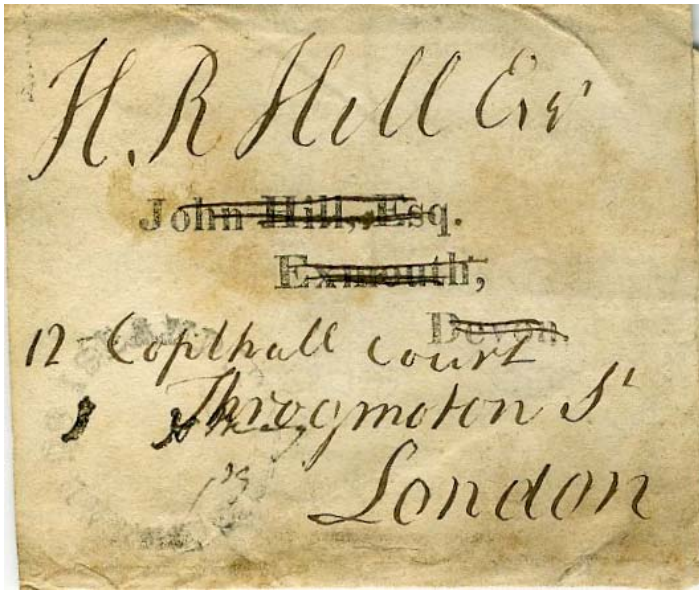 H. R Hill Esqr
John Hill, Esq.
Exmouth,
Devon
12 Copthall Court
Throgmoton St
London